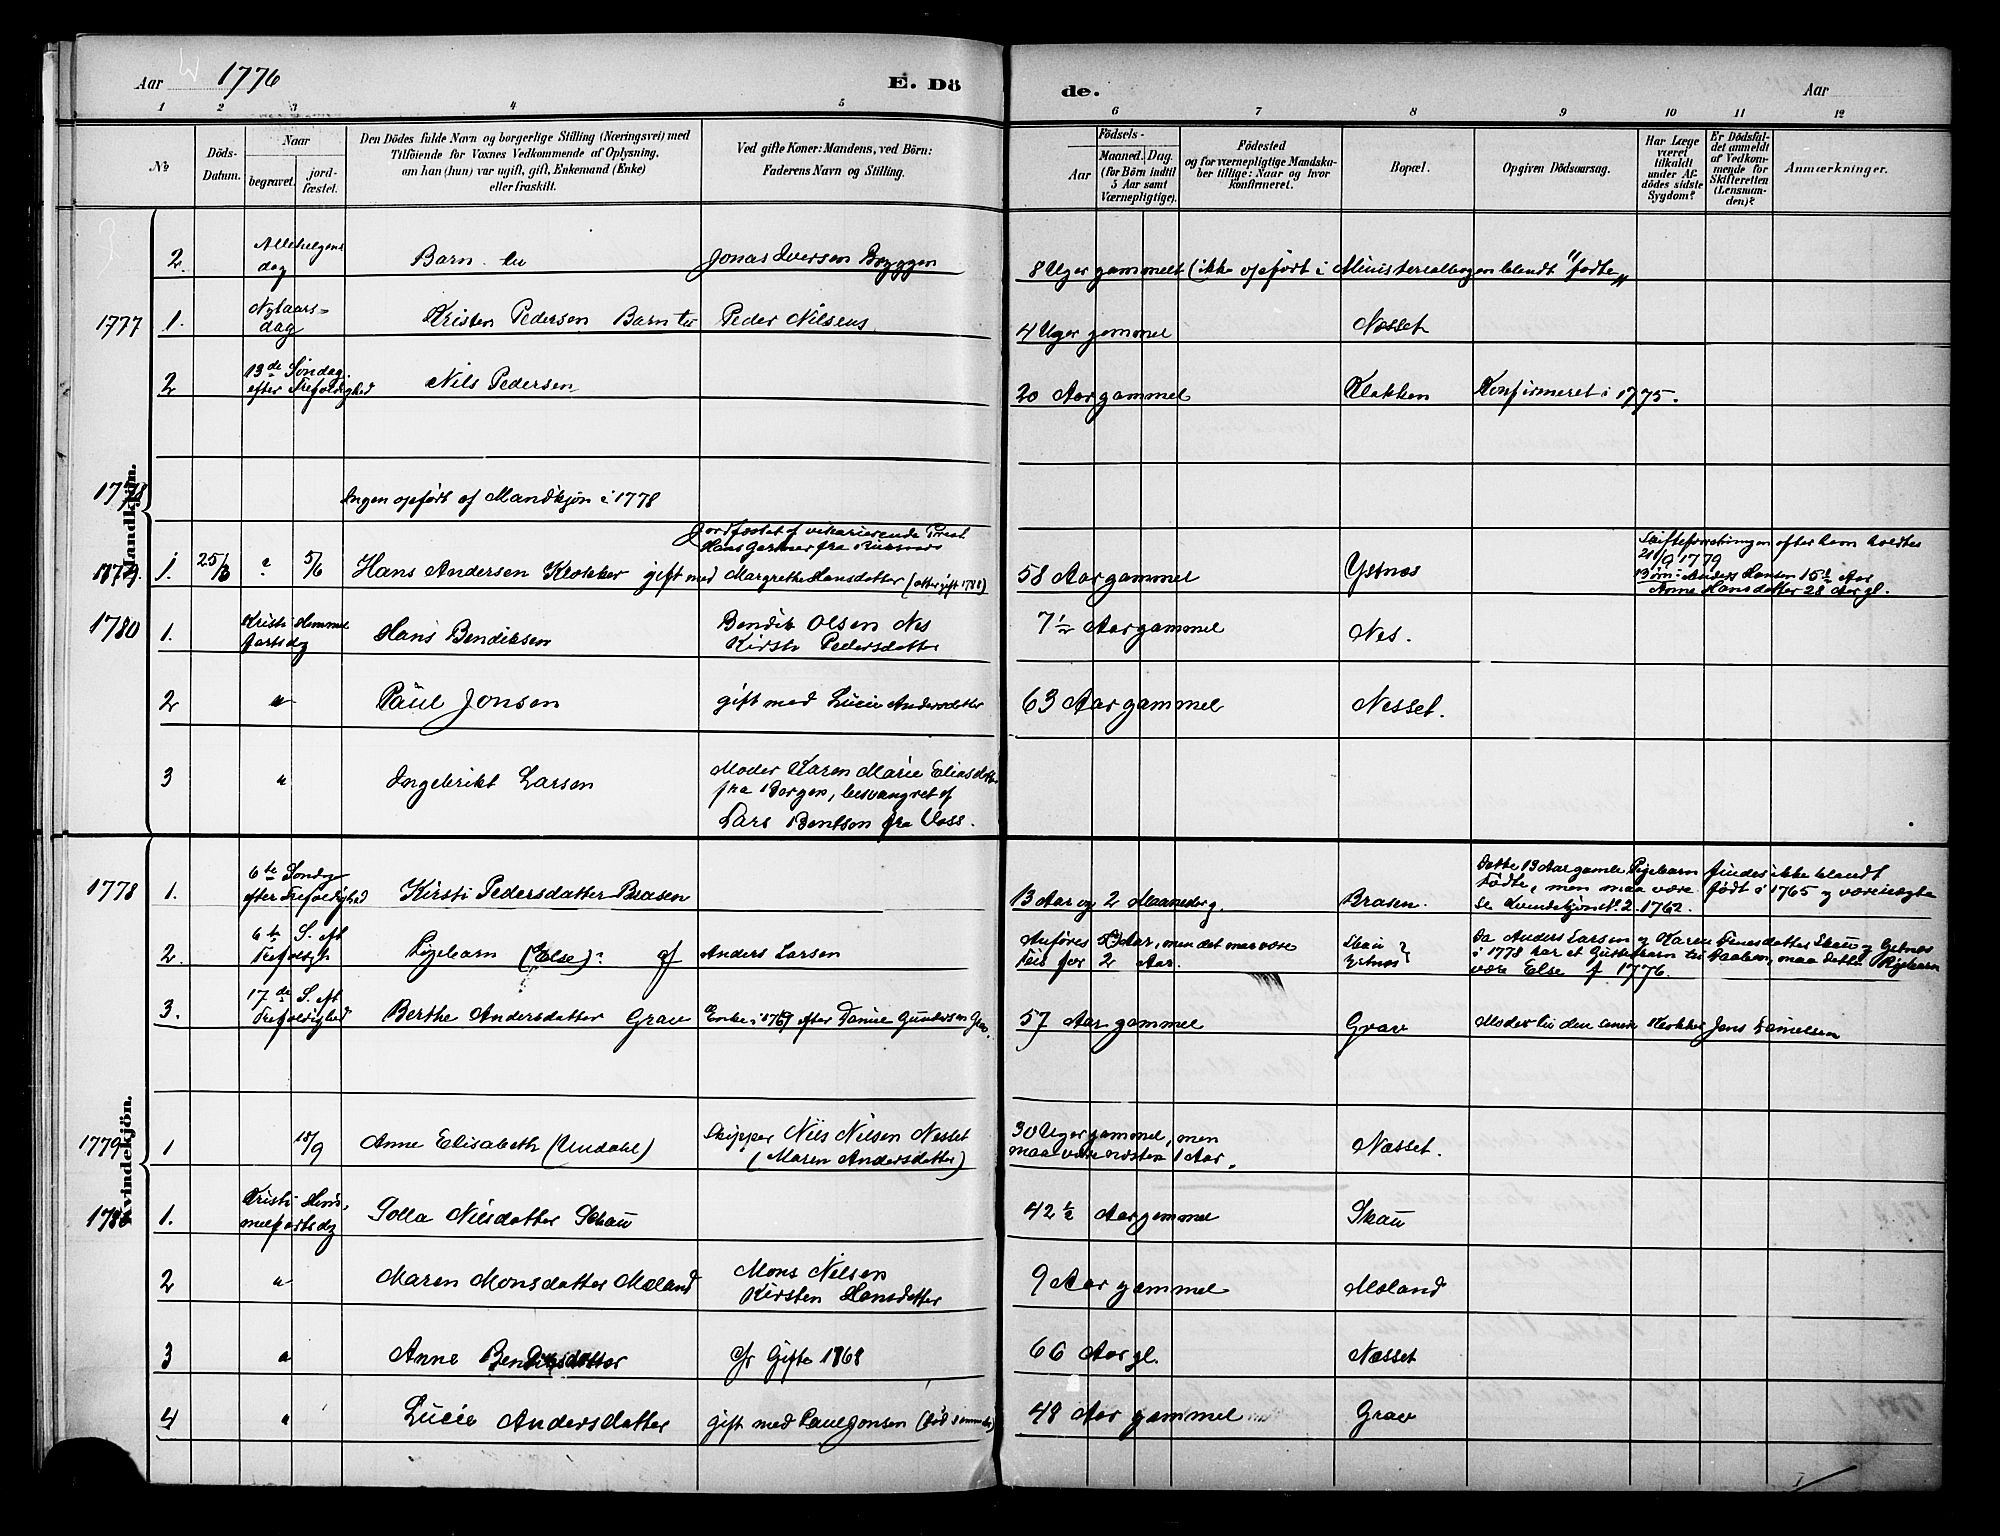 Aar 1776 E. Dö de. Aar
1 2 3 4 5 6 7 8 9 10 11 12
No
Döds-Datum.
Naar
begravet.
jord-fæstet.
Den Dödes fulde Navn og borgerlige Stilling (Næringsvei) med
Tilföiende for Voxnes Vedkommende af Oplysning,
om han (hun) var ugift, gift, Enkemand (Enke)
eller fraskilt.
Ved gifte Koner: Mandens, ved Börn:
Faderens Navn og Stilling.
Födsels-
Aar
Maaned. Dag.
(for Börn indtil
5 Aar samt
Værnepligtige).
Födested
og for værnepligtige Mandska-
ber tillige: Naar og hvor
konfirmeret.
Bopæl.
Opgiven Dödsaarsag.
Har Læge
været
tilkaldt
under Af-
dödes sidste
Sygdom?
Er Dödsfal-
det anmeldt
af Vedkom-
mende for
Skifteretten
(Lensman-
den)?
Anmærkninger.
Mandkjön.
2. Allehelgens dag Barn til Jonas Iversen Bryggen 8 Uger gammelt (ikke opført i Ministerialbogen blandt "fødte"
1777 1. Nytaarsdag Kristen Pedersen Barn til Peder Nilsens 4 Uger gammel Næsset
2 13de Søndag efter Trefoldighed Nils Pedersen 20 Aar gammel Klokken Konfirmeret i 1775.
1778 Ingen opført af Mandkjøn i 1778
Jordfæstet af vikarierende Prest
Hans fra
1779. 1. 25/3 ? 5/6 Hans Andersen Klokker gift med Margrethe Hansdatter 58 Aar gammel Ystnes
Skifteforretningen efter ham holdtes
21/9 1779
Børn: Anders Hansen 15 Aar
Anne Hansdatter 28 Aar gl.
1780 1. Kristi Himmelfartsdg Hans Bendiksen Bendik Olsen Nes
Kirsti Pedersdatter 7 1/2 Aar gammel Nes.
2 " Paul Jonsen gift med Lucie Andersdatter 63 Aar gammel Nesset.
3 " Ingebrikt Larsen Moder Karen Marie Eliasdatter
fra Bergen, besvangret af
Lars Bentsen fra Voss.
Kvindekjön.
1778 1. 6te Søndg efter Trefoldighed Kirsti Pedersdatter Brasen 13 Aar og 2 Maaneder g. Brasen.
Dette 13 Aar gamle Pigebarn findes ikke blandt
Fødte, men maa være født i 1765 og være
se Kvindekjøn No. 2. 1762.
2. 6te S. aft Trefoldigh Pigebarn (Else)? af Anders Larsen Anføres 50 Aar, men det maa være
Feil for 2 Aar. Skau? Ystnes?
Da Anders Larsen og Karen Skau og Ystnes
i 1778 har et til Daaben, maa dette Pigebarn
være Else f 1776.
3. 17de S. aft Trefoldighed Berthe Andersdatter Grav Enke i 1769 efter Daniel Gundersen 57 Aar gammel Grav Moder til den senere Klokker Jens Danielsen
1779 1 18/9 Anne Elisabeth (Undahl) Skipper Nils Nilsen Nesset
(Maren Andersdatter) 30 Uger gammel, men
maa være næsten 1 Aar. Næsset.
1780 1. Kristi Himmelfartsdg Solla Nilsdatter Skau 42 1/2 Aar gammel Skau
2 " Maren Monsdatter Moland Mons Nilsen
Kirsten Hansdatter 9 Aar gammel Moland
3 " Anne Bendiksdatter Cfr Gifte 1768 66 Aar gl. Næsset
4 " Lucie Andersdatter gift med Paul Jonsen 48 Aar gammel Grav